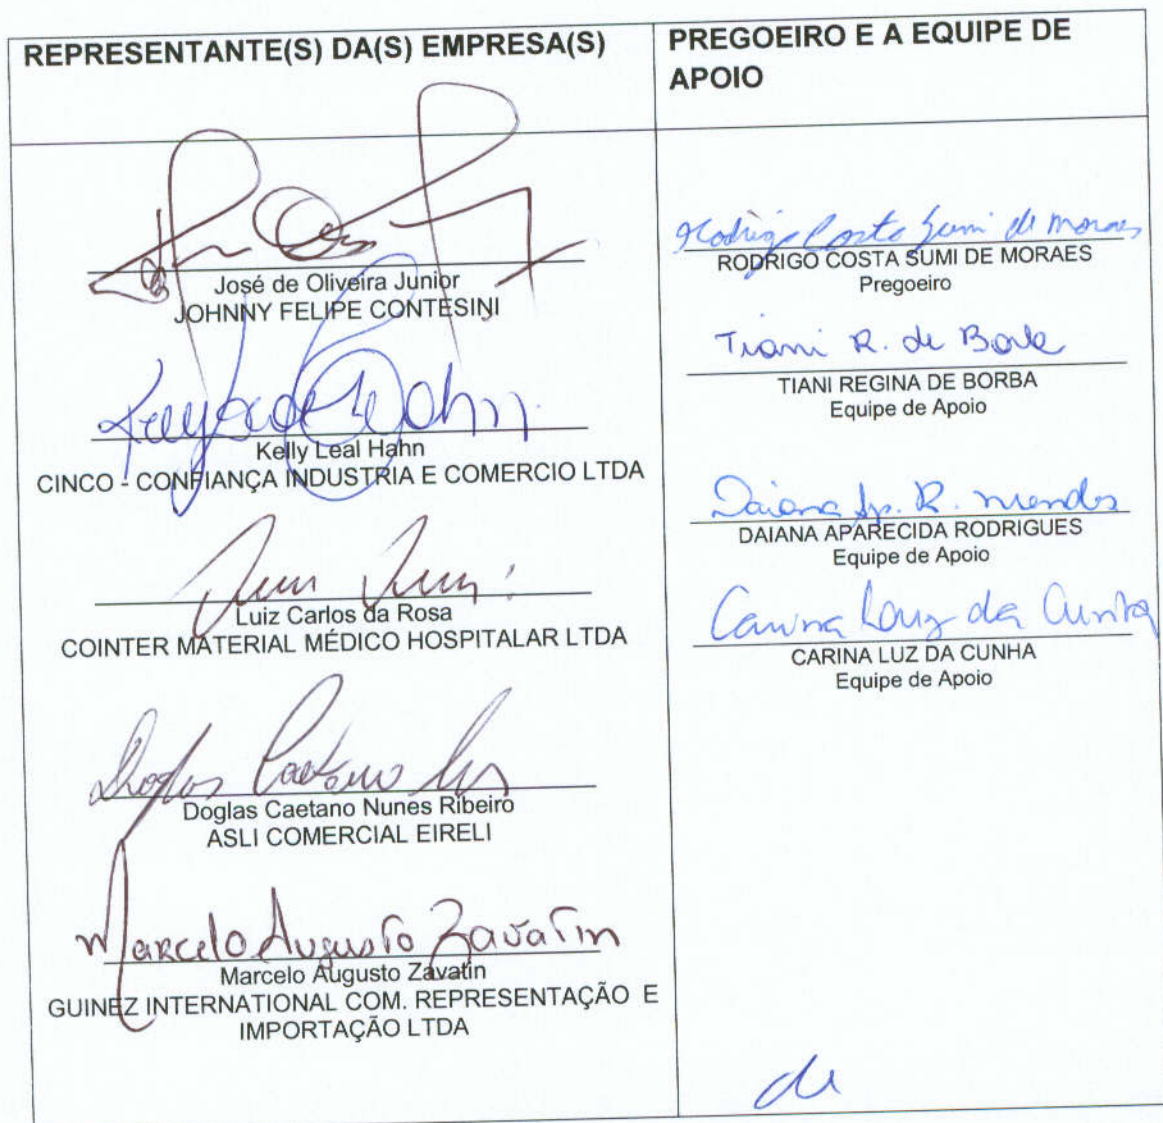 REPRESENTANTE(S) DA(S) EMPRESA(S)
José de Oliveira Junior
JOHNNY FELIPE CONTESINI
Kelly Leal Hahn
CINCO - CONFIANÇA INDUSTRIA E COMERCIO LTDA
Luiz Carlos da Rosa
COINTER MATERIAL MÉDICO HOSPITALAR LTDA
Doglas Caetano Nunes Ribeiro
ASLI COMERCIAL EIRELI
Marcelo Augusto Zavatin
Marcelo Augusto Zavatin
GUINEZ INTERNATIONAL COM. REPRESENTAÇÃO E
IMPORTAÇÃO LTDA
PREGOEIRO E A EQUIPE DE
APOIO
Rodrigo Costa Sumi de Moraes
RODRIGO COSTA SUMI DE MORAES
Pregoeiro
Tiani R. de Borba
TIANI REGINA DE BORBA
Equipe de Apoio
Daiana Ap. R. Mendes
DAIANA APARECIDA RODRIGUES
Equipe de Apoio
Carina Luz da Cunha
CARINA LUZ DA CUNHA
Equipe de Apoio